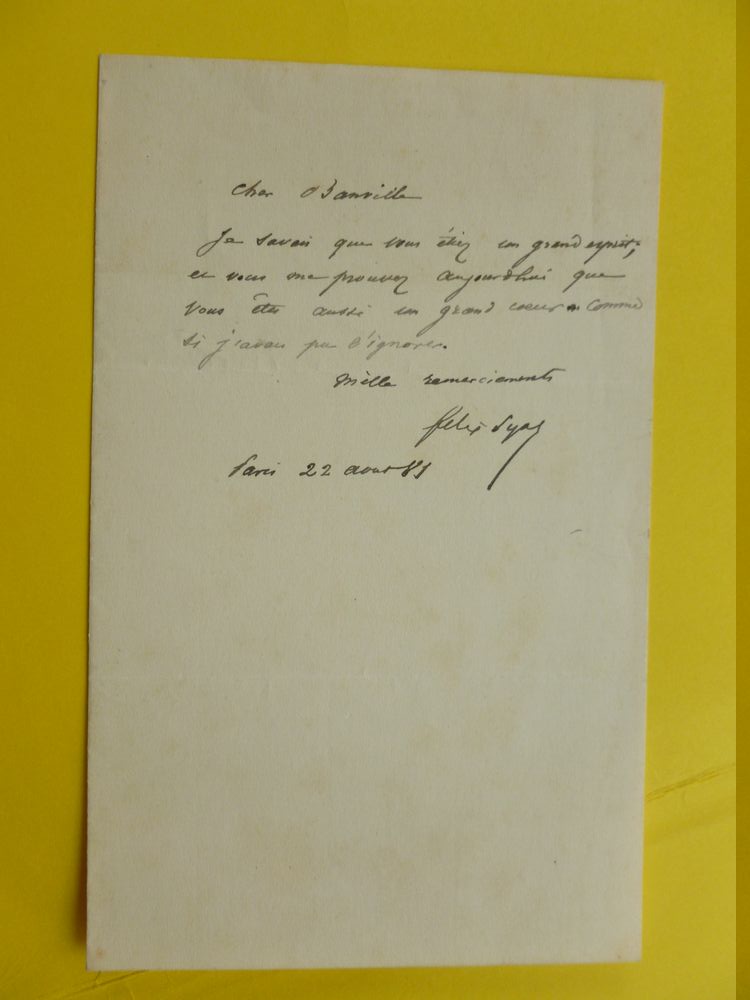 Cher Banville
Je savais que vous étiez un grand esprit,
et vous me prouvez aujourdhui que
vous êtes aussi un grand coeur comme
si j'avais pu l'ignorer.
Mille remerciements
félix Pyat
Paris 22 aout 81